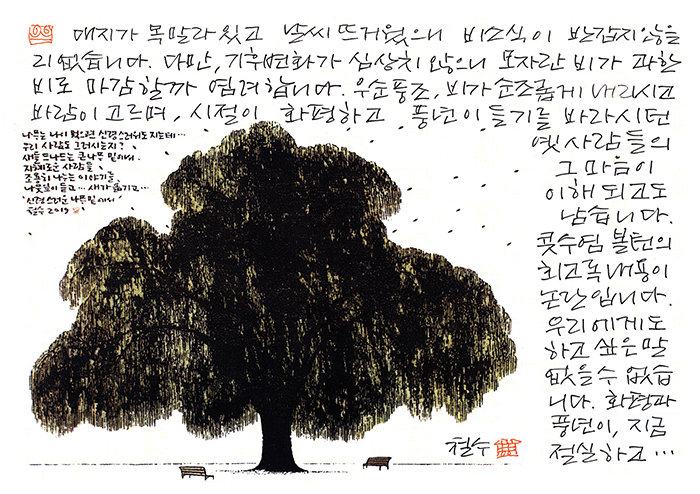 대지가 목말라 있고 날씨 뜨거웠으니 비소식이 반갑지 않을
리 없습니다. 다만, 기후변화가 심상치 않으니 모자란 비가 과한
비로 마감할까 염려합니다. 우순풍조, 비가 순조롭게 내리시고
바람이 고르며, 시절이 화평하고 풍년이 들기를 바라시던
옛 사람들의
그 마음이
이해 되고도
남습니다.
콧수염 볼턴의
회고록 내용이
논란입니다.
우리에게도
하고 싶은 말
없을 수 없습
니다. 화평과
풍년이, 지금
절실하고…
나무는 나이 먹으면 신령스러워도 지는데…
우리 사람도 그러시는지?
새들 드나드는 큰 나무 밑에서
지혜로운 사람들
조용히 나누는 이야기를
나뭇잎이 듣고… 새가 옮기고…
신령스러운 나무 밑에서
철수 2019
철수